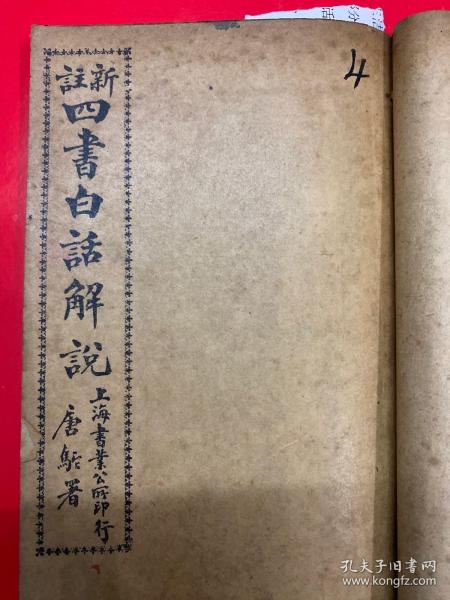 新註
四書白話解說
上海書業公所印行
唐駝署
4
孔夫子旧书网
www.kongfz.com